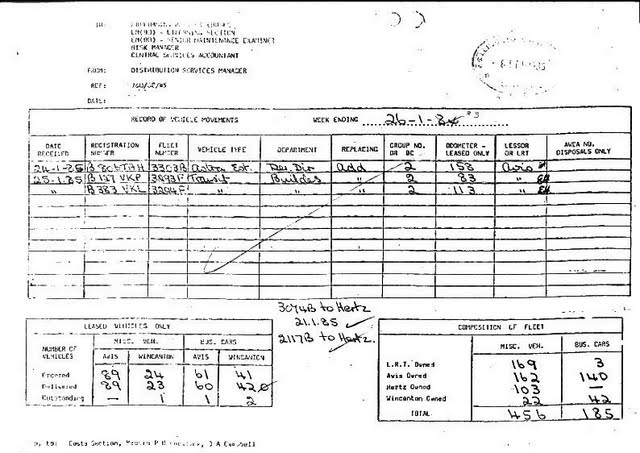 TO:
LM(RO) - LICENSING SECTION
LM(RO) - SENIOR MAINTENANCE EXAMINER
RISK MANAGER
CENTRAL SERVICES ACCOUNTANT
FROM: DISTRIBUTION SERVICES MANAGER
REF:
DATE:
RECORD OF VEHICLE MOVEMENTS WEEK ENDING 26-1-84
DATE RECEIVED REGISTRATION NUMBER FLEET NUMBER VEHICLE TYPE DEPARTMENT REPLACING GROUP NO. OR BC ODOMETER - LEASED ONLY LESSOR OR LRT AVEA NO. DISPOSALS ONLY
24-1-85 3303B Astra Est. Dir Add 2 158 Avis
25.1.85 B 187 VKP 3893F Transit Buildes " 2 83 "
" B 383 VKL 3204F " " " 2 113 "
3074B to Hertz
21.1.85
2117B to Hertz.
LEASED VEHICLES ONLY
NUMBER OF VEHICLES MISC. VEH. BUS. CARS
AVIS WINCANTON AVIS WINCANTON
Ordered 89 24 61 41
Delivered 89 23 60 42
Outstanding — 1 1 2
COMPOSITION OF FLEET
MISC. VEH. BUS. CARS
L.R.T. Owned 169 3
Avis Owned 162 140
Hertz Owned 103 —
Wincanton Owned 22 42
TOTAL 456 185
Costs Section,